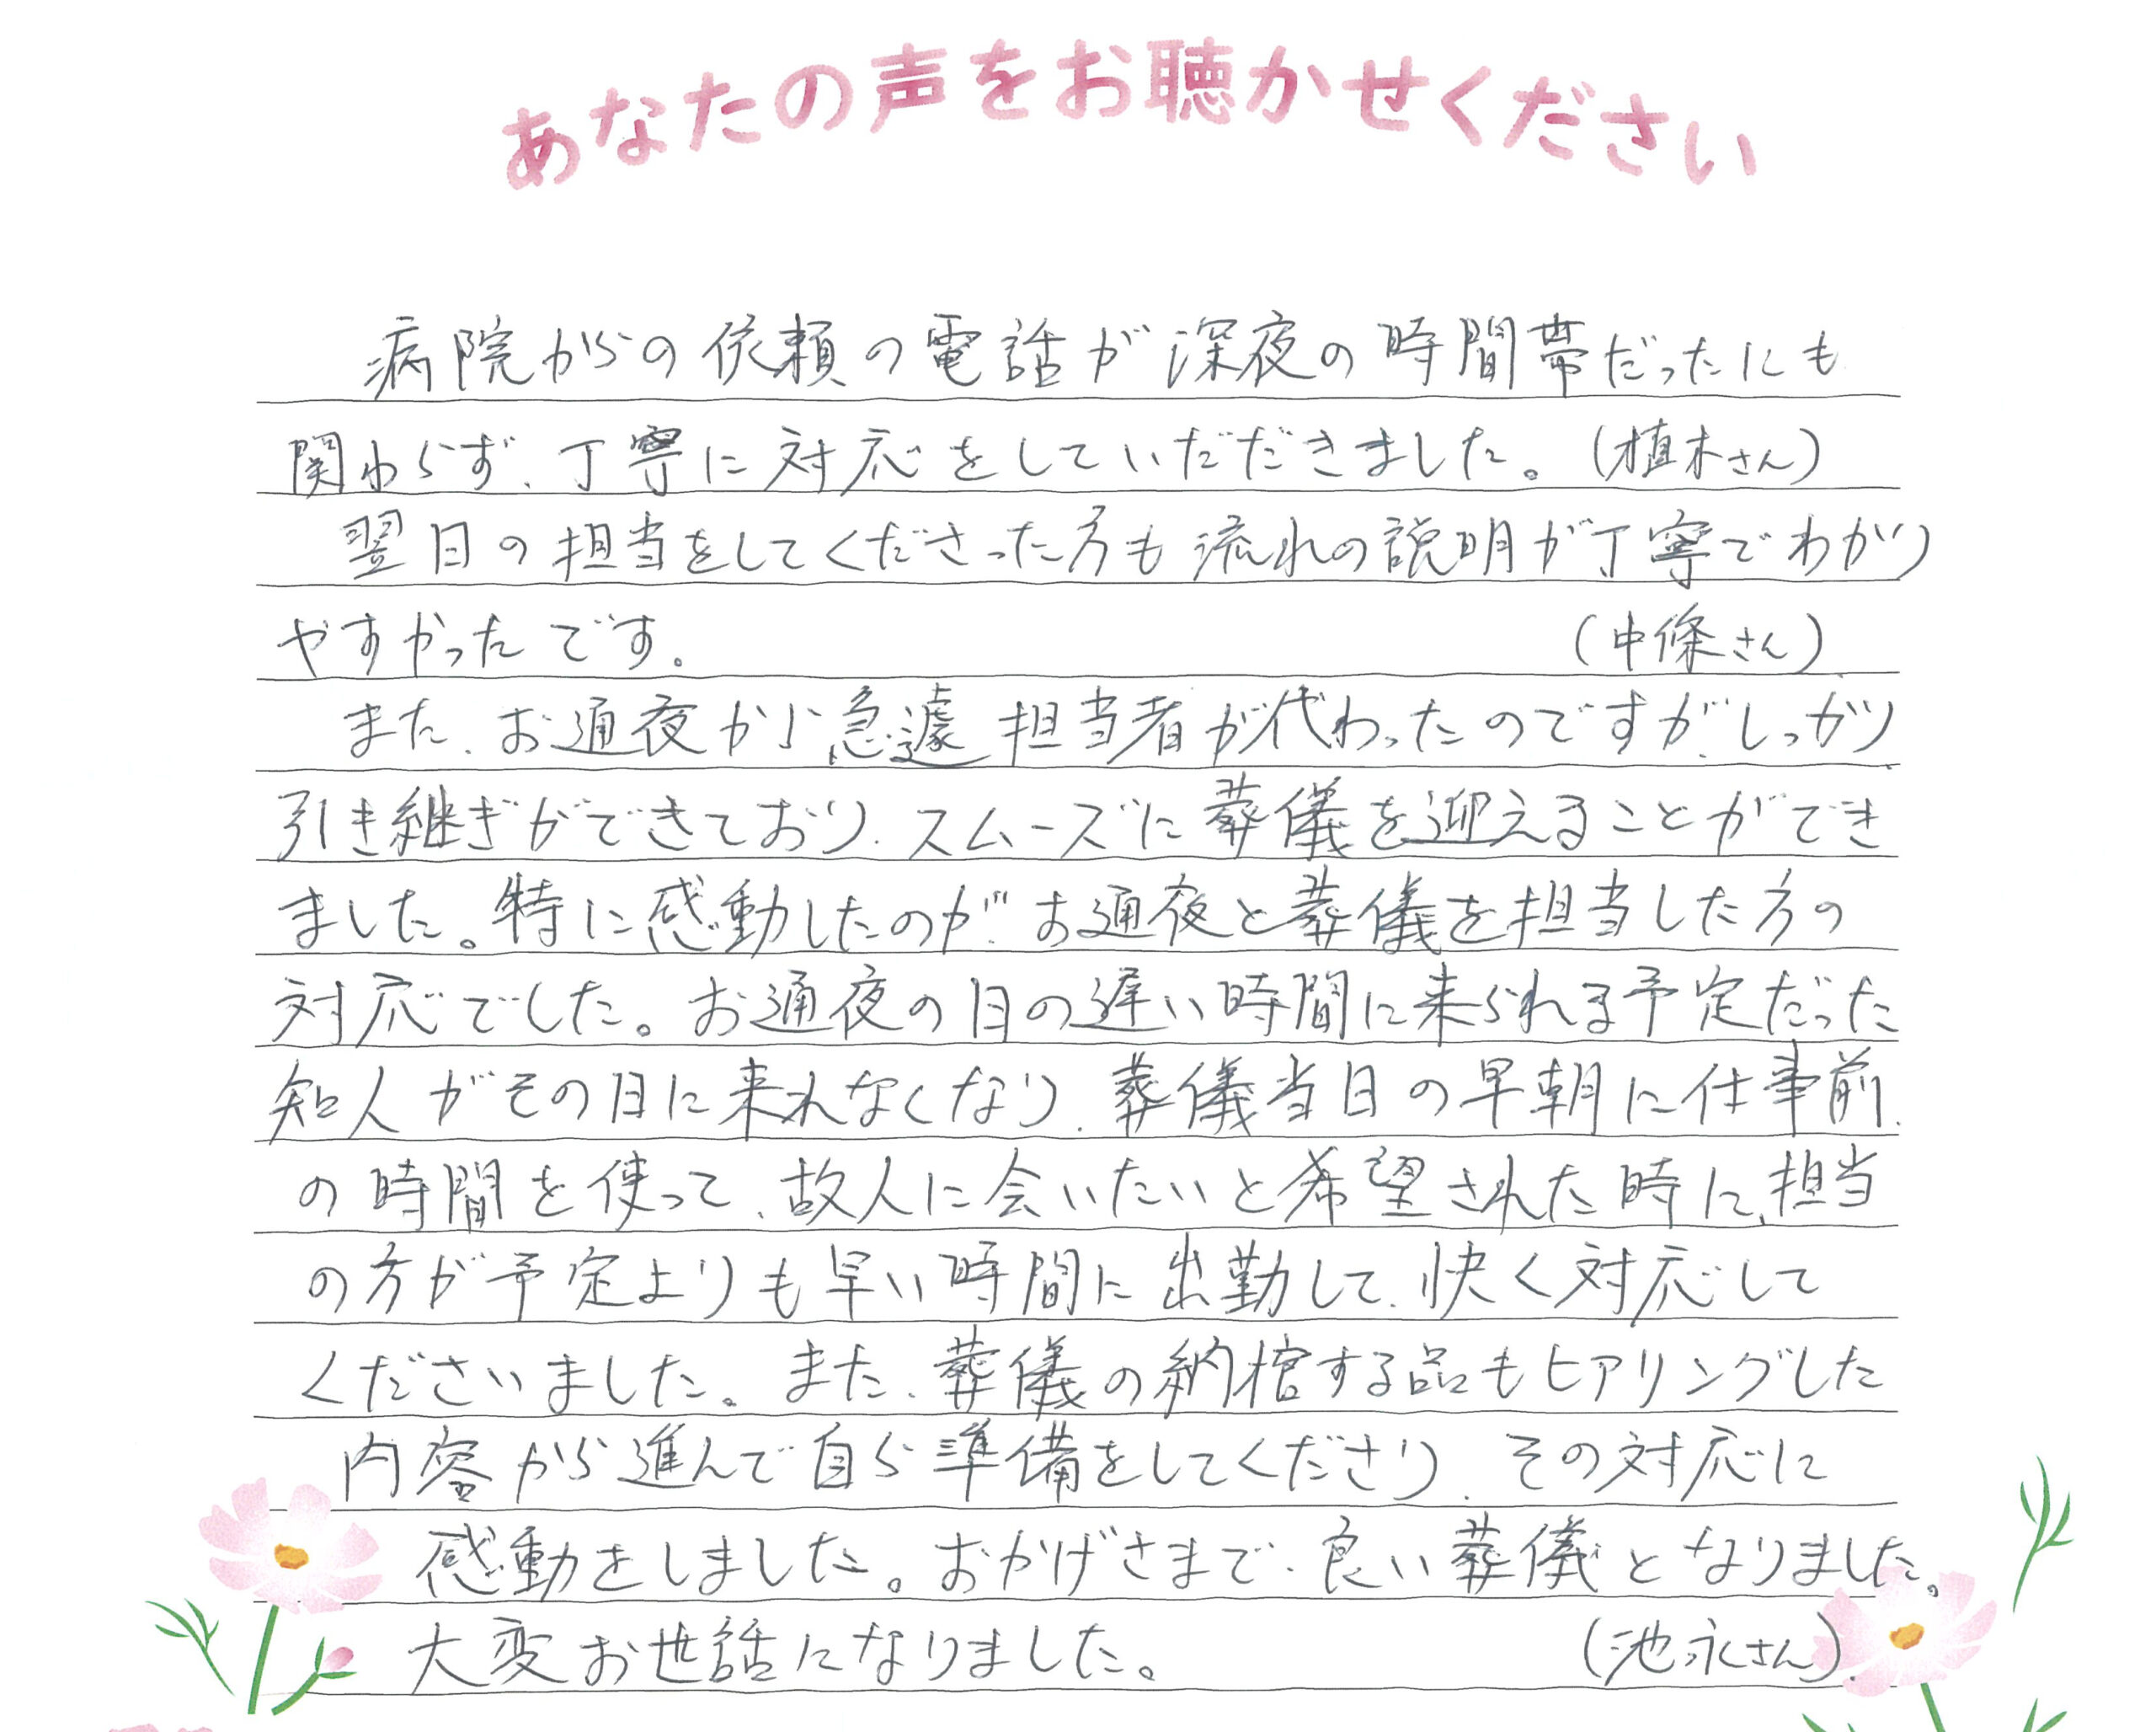 あなたの声をお聴かせください
病院からの依頼の電話が深夜の時間帯だったにも
関わらず、丁寧に対応をしていだだきました。(植木さん)
翌日の担当をしてくださった方も流れの説明が丁寧でわかり
やすかったです。(中條さん)
また、お通夜から急遽担当者が代わったのですが、しっかり
引き継ぎができており、スムーズに葬儀を迎えることができ
ました。特に感動したのが、お通夜と葬儀を担当した方の
対応でした。お通夜の日の遅い時間に来られる予定だった
知人がその日に来れなくなり、葬儀当日の早朝に仕事前
の時間を使って、故人に会いたいと希望された時に、担当
の方が予定よりも早い時間に出勤して、快く対応して
くださいました。また、葬儀の納棺する品もヒアリングした
内容から進んで自ら準備をしてくださり、その対応に
感動をしました。おかげさまで、良い葬儀となりました。
大変お世話になりました。(池永さん)